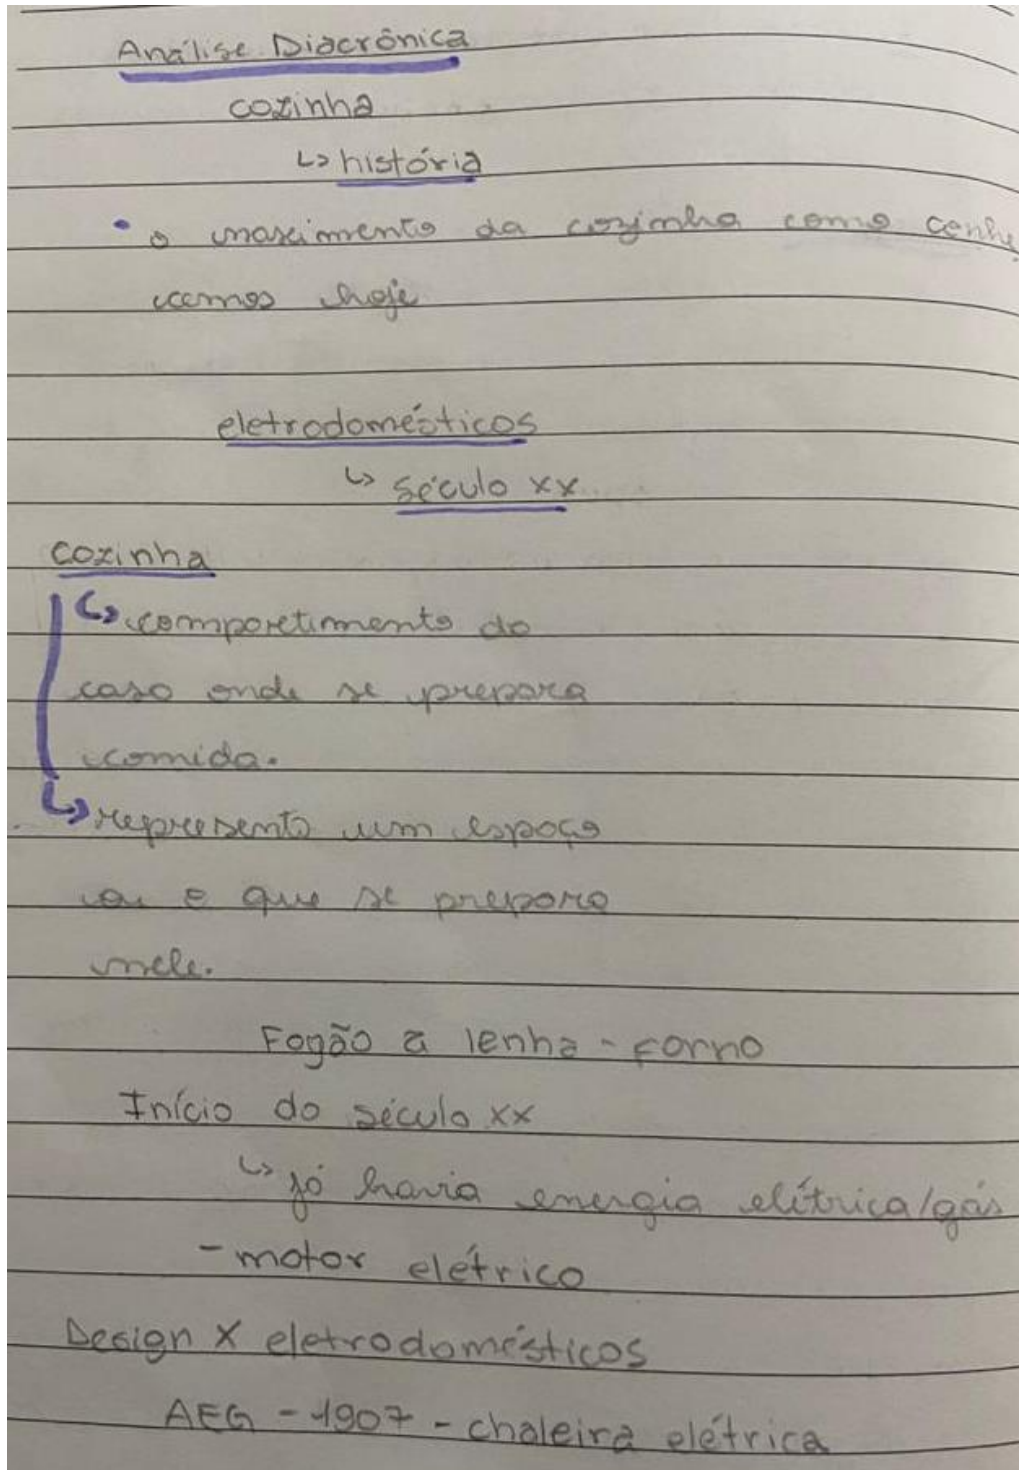 Análise Diacrônica
cozinha
↳ história
• o nascimento da cozinha como conhe
cemos hoje
eletrodomésticos
↳ século xx
cozinha
↳ compartimento da
casa onde se prepara
comida.
↳ representa um espaço
e que se prepara
nele.
Fogão a lenha - Forno
Início do século xx
↳ já havia energia elétrica/gás
- motor elétrico
Design X eletrodomésticos
AEG - 1907 - chaleira elétrica